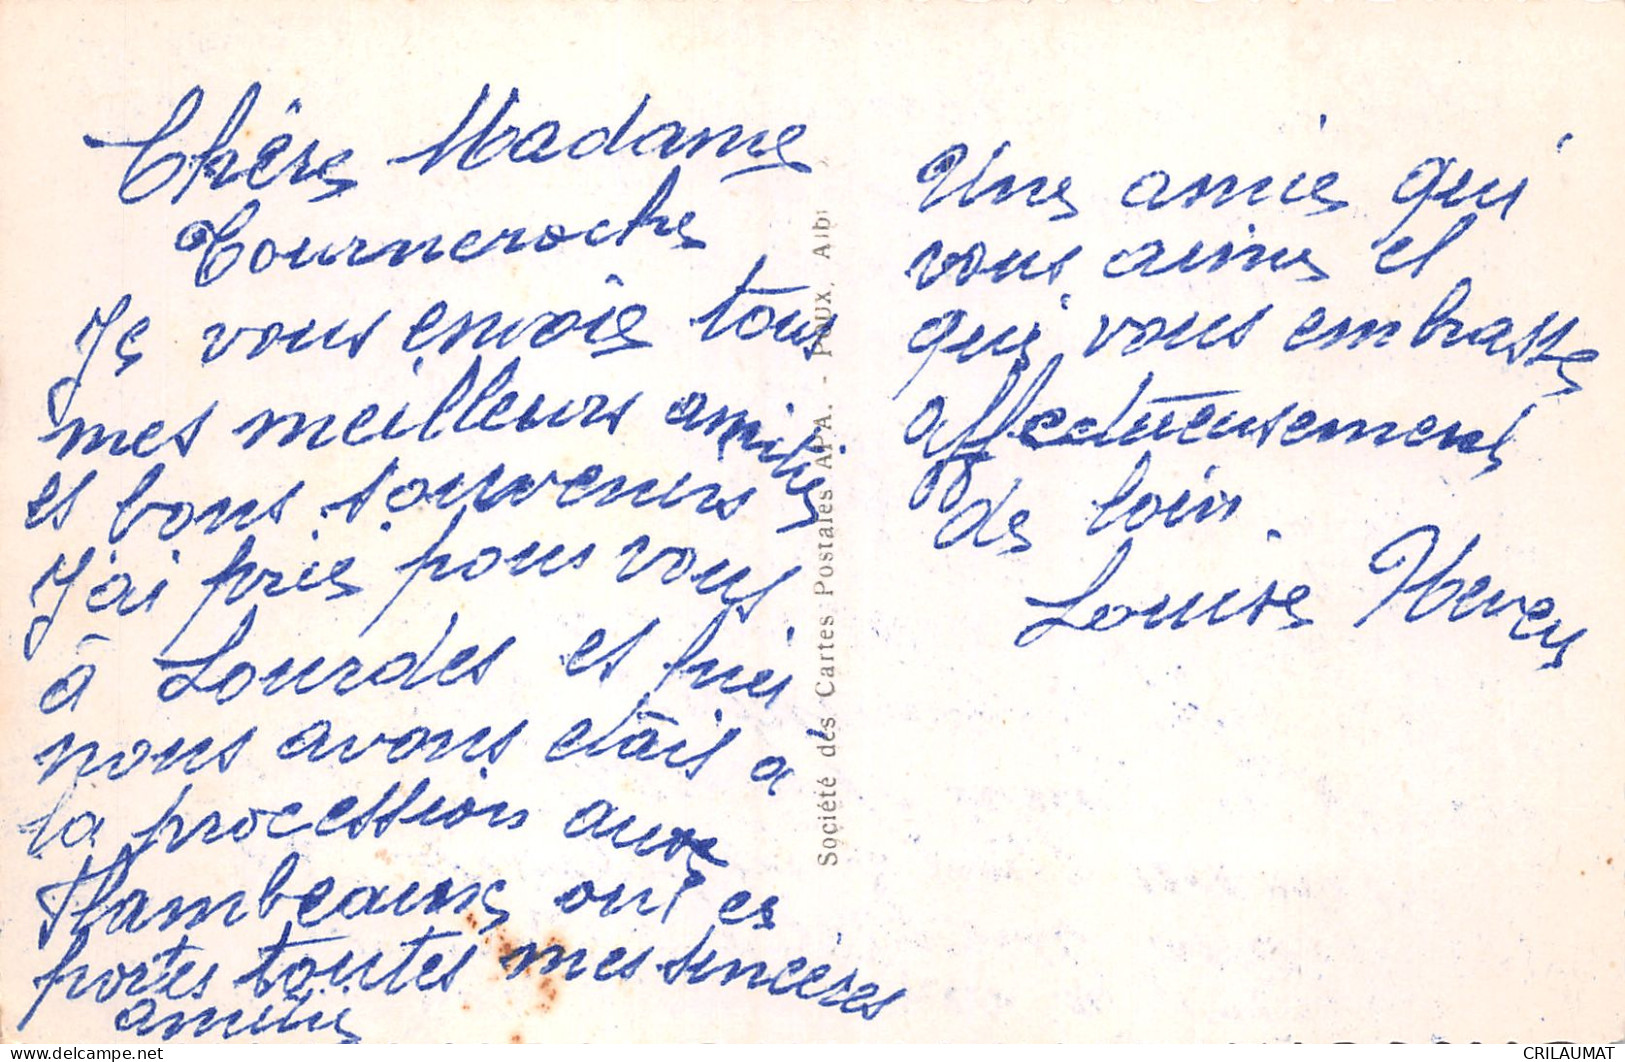 Chère Madame
Tourneroche
Je vous envoie tous
mes meilleurs amitié
et bons souvenirs
J'ai prié pour vous
à Lourdes et hier
nous avons étais a
la procession aux
Flambeaux on et
portes toutes mes sincères
amitié
Une amie qui
vous aime et
qui vous embrasse
affectueusement
de loin.
Louise
Société des Cartes Postales APA. - POUX, Albi
CRILAUMAT